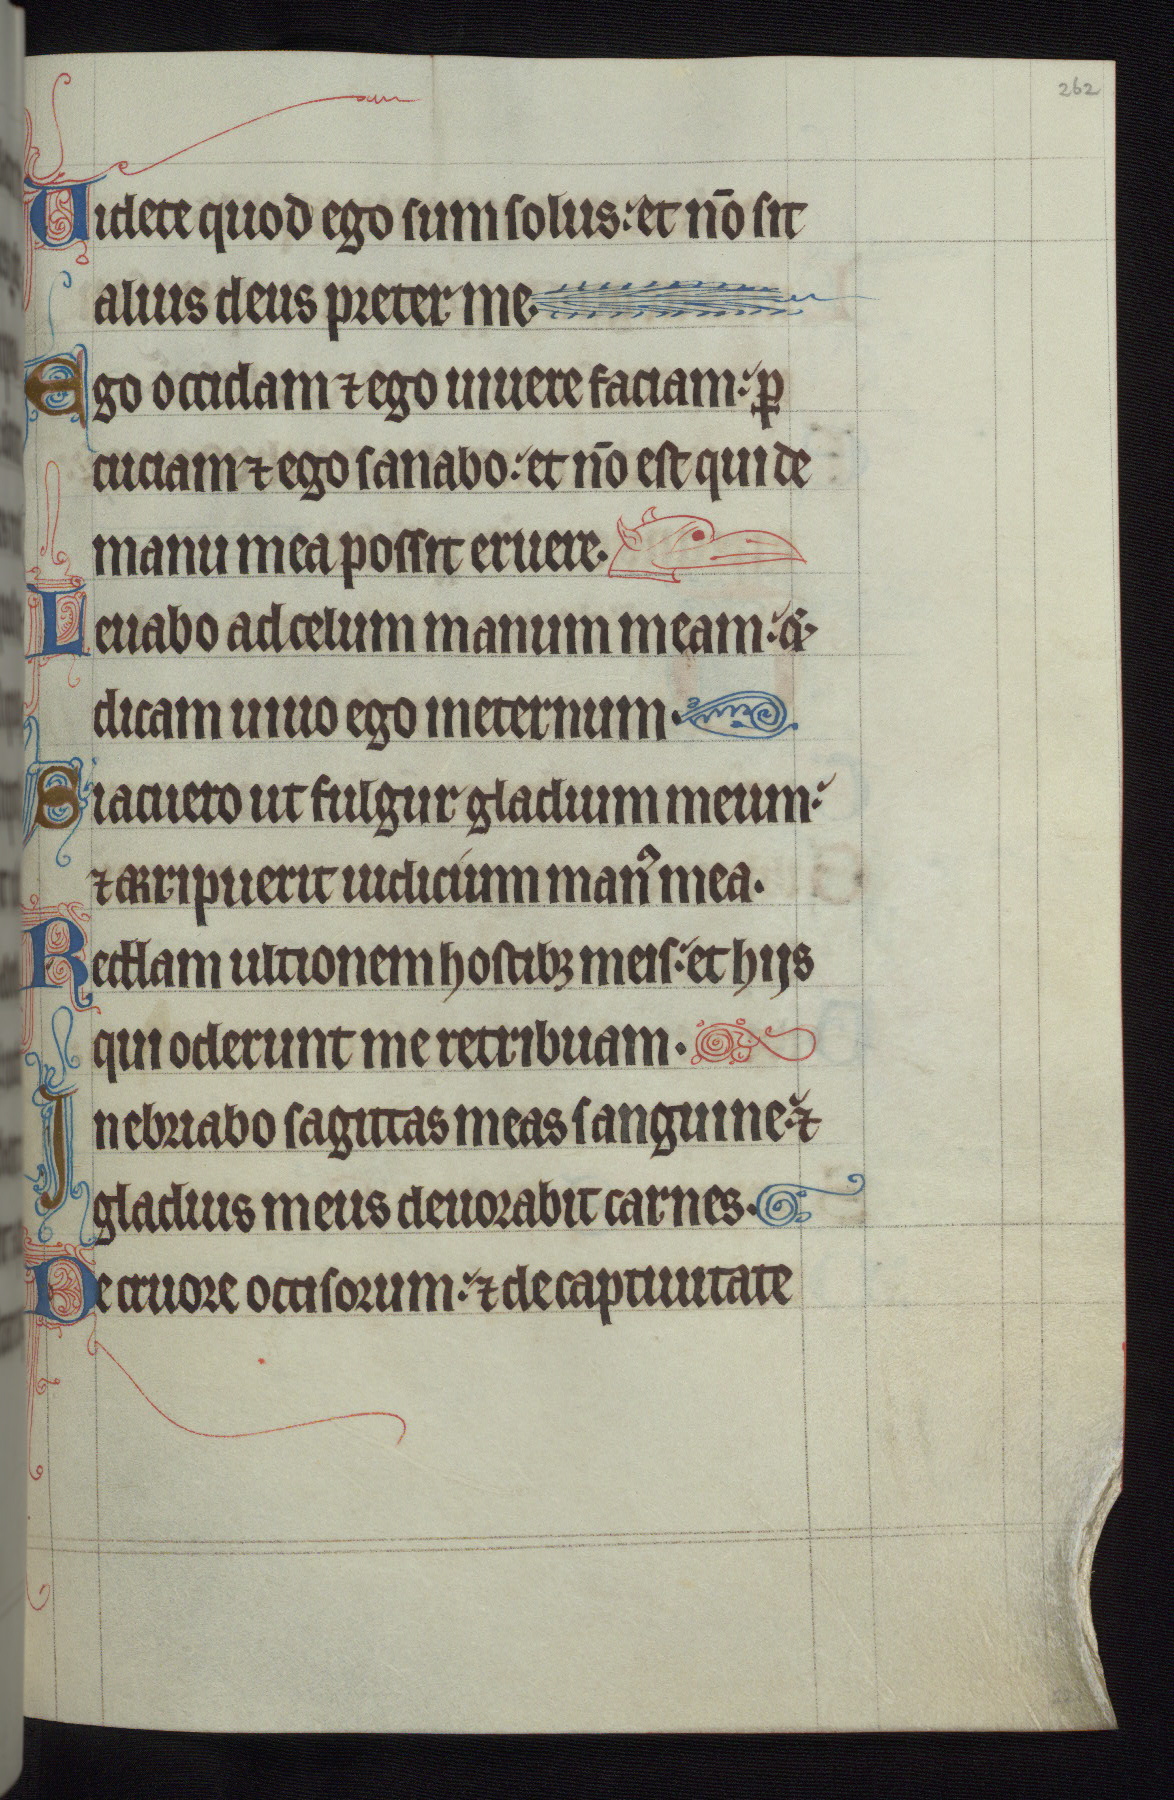 262
Uidete quod ego sum solus: et nō sit
alius deus preter me.
Ego occidam ⁊ ego uiuere faciam: ꝑ
cuciam ⁊ ego sanabo: et nō est qui de
manu mea possit eruere.
Leuabo ad celum manum meam: &
dicam uiuo ego ineternum.
Si acuero ut fulgur gladium meum:
⁊ arripuerit iudicium manꝰ mea.
Reddam ultionem hostibꝫ meis: et hijs
qui oderunt me retribuam.
Inebriabo sagittas meas sanguine: ⁊
gladius meus deuorabit carnes.
De cruore occisorum: ⁊ de captiuitate